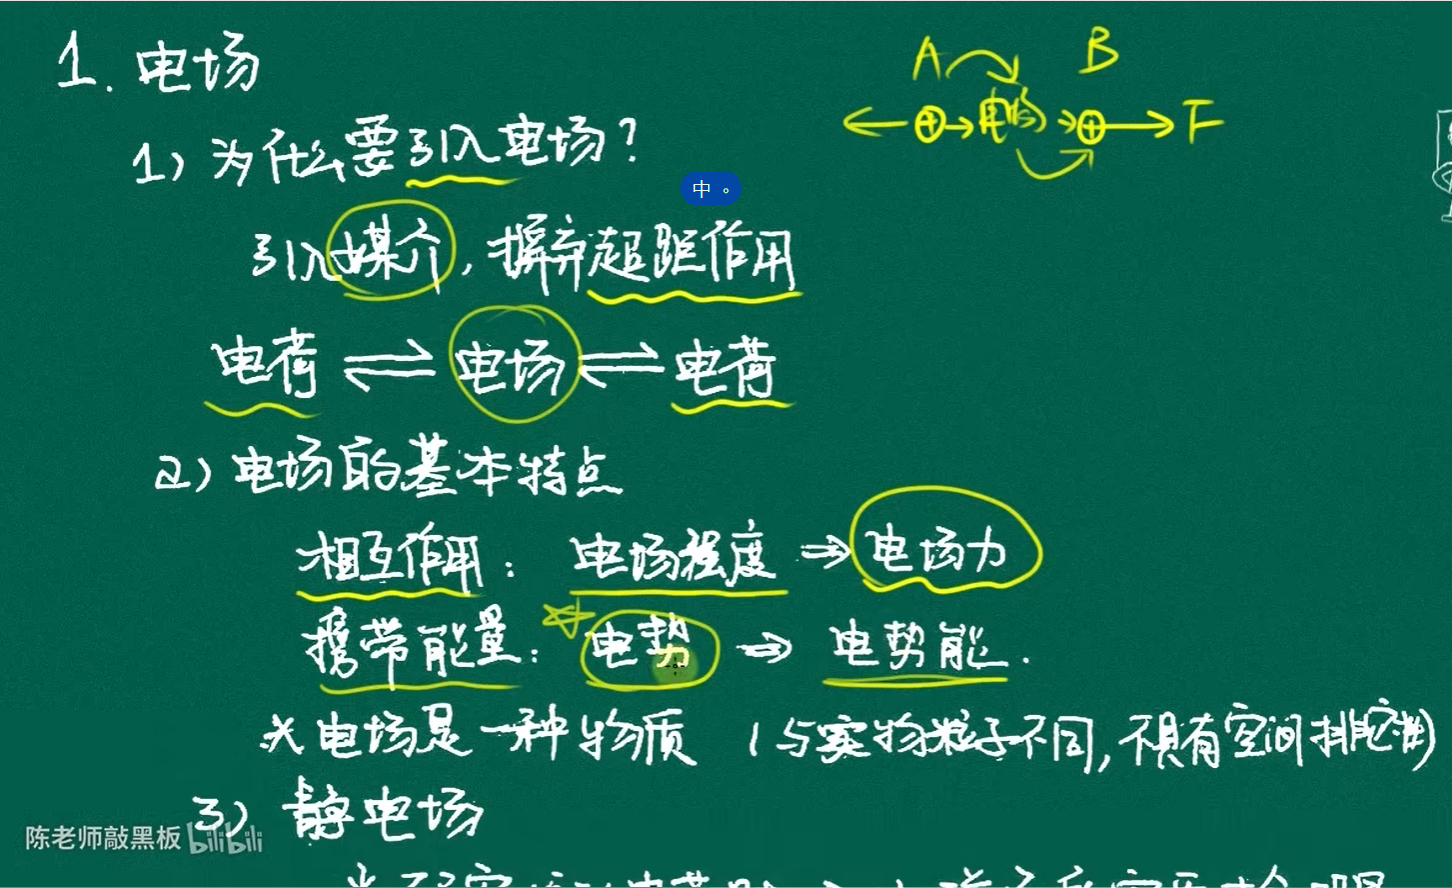 1. 电场
A B
⊕ 电场 ⊕ F
1) 为什么要引入电场?
中 。
引入媒介, 摒弃超距作用
电荷 ⇌ 电场 ⇌ 电荷
2) 电场的基本特点
相互作用: 电场强度 ⇒ 电场力
携带能量: 电势 ⇒ 电势能.
※电场是一种物质 (与实物粒子不同, 不具有空间排它性)
3) 静电场
陈老师敲黑板 bilibili